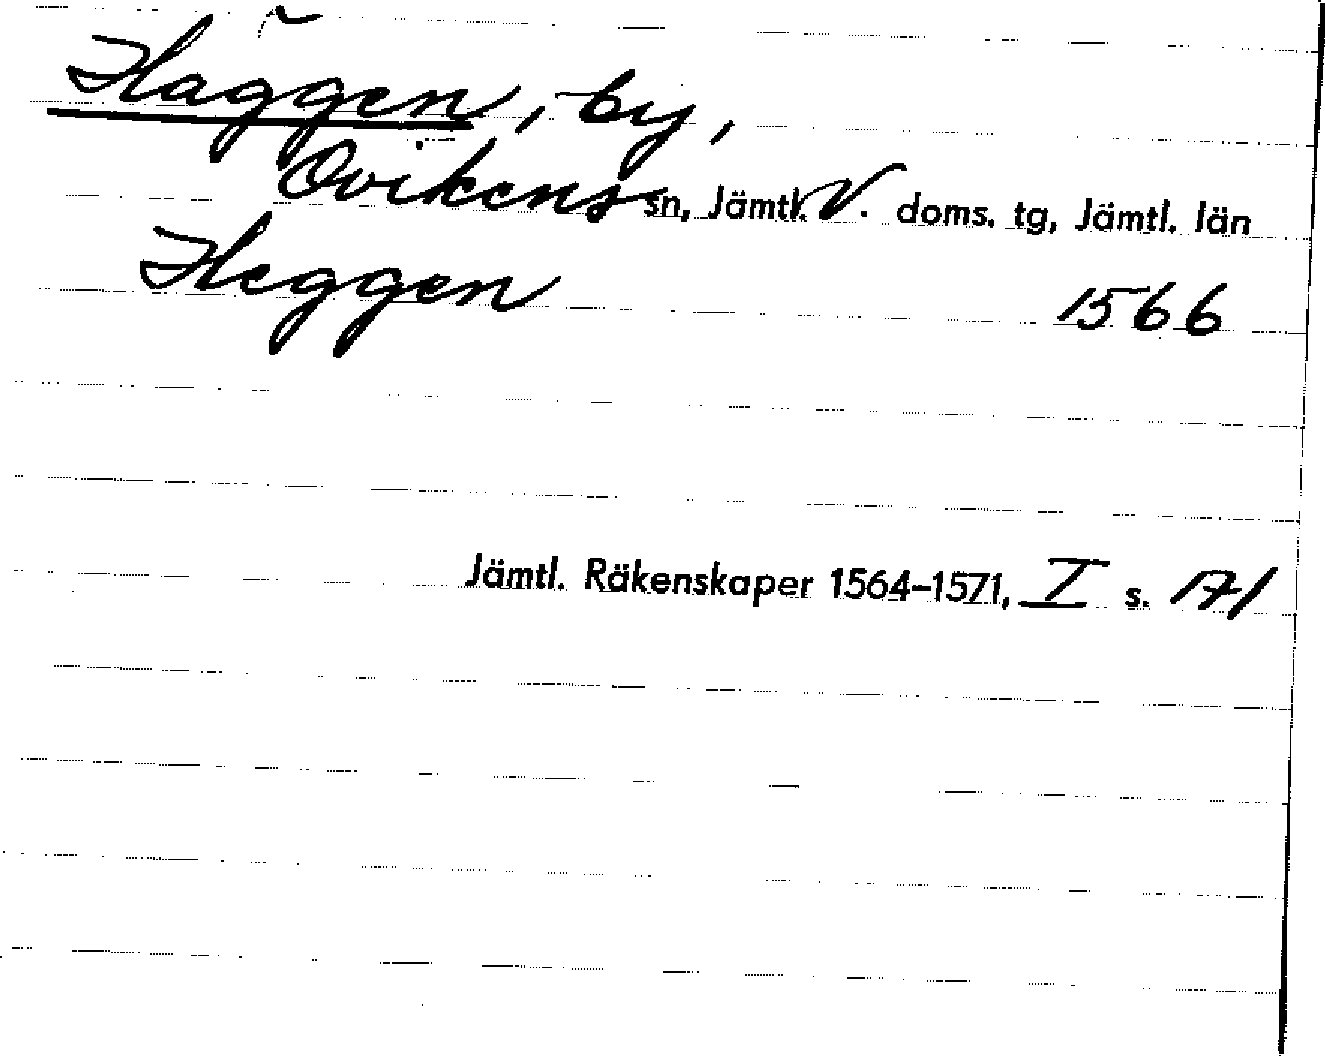 Häggen, by,
Ovikens sn, Jämtl. V. doms. tg, Jämtl. län
Heggen 1566
Jämtl. Räkenskaper 1564-1571, I s. 171